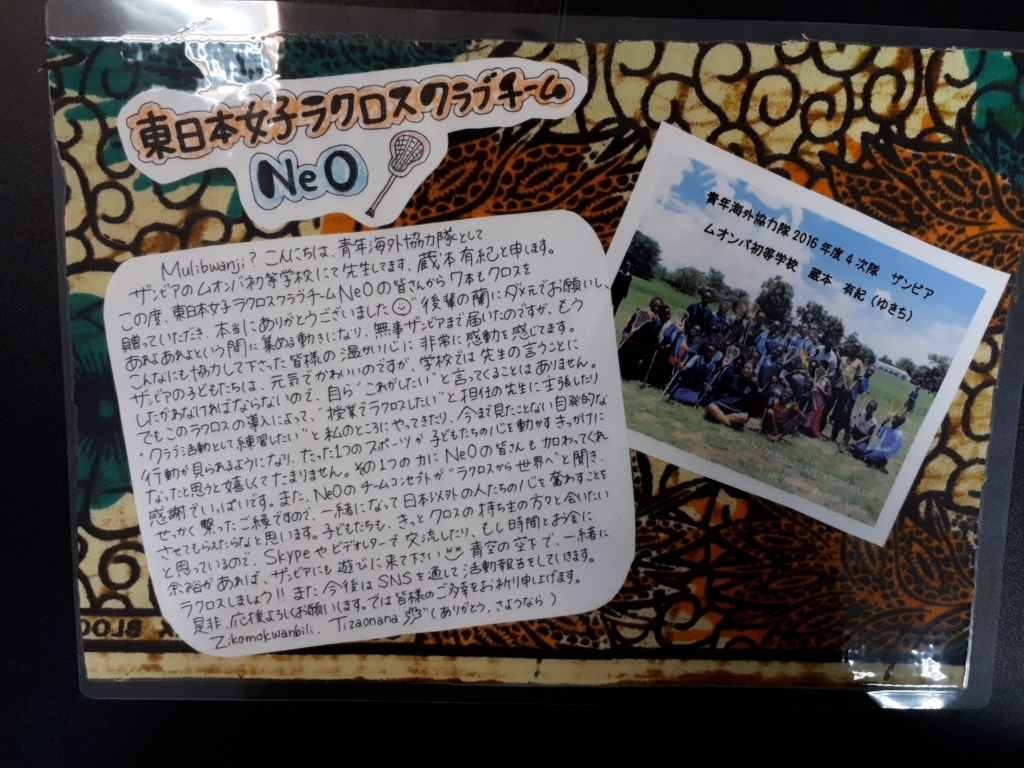 東日本女子ラクロスクラブチーム
NeO
Mulibwanji? こんにちは、青年海外協力隊として
ザンビアのムオンバ初等学校にて先生してます、蔵本有紀と申します。
この度、東日本女子ラクロスクラブチームNeOの皆さんから7本もクロスを
贈っていただき、本当にありがとうございました 後輩の蘭にダメ元でお願いし、
あれよあれよという間に集める動きになり、無事ザンビアまで届いたのですが、もう
こんなにも協力して下さった皆様の温かい心に非常に感動を感じてます。
ザンビアの子どもたちは、元気でかわいいのですが、学校では先生の言うことに
したがわなければならないので、自ら"これがしたい"と言ってくることはありません。
でもこのラクロスの導入によって、"授業でラクロスしたい"と担任の先生に主張したり
"クラブ活動として練習したい"と私のところにやってきたり、今まで見たことない自発的な
行動が見られるようになり、たった1つのスポーツが子どもたちの心を動かすきっかけに
なったと思うと嬉しくてたまりません。その1つの力にNeOの皆さんも加わってくれ
感謝でいっぱいです。また、NeOのチームコンセプトが"ラクロスから世界へ"と聞き、
せっかく繋ったご縁ですので、一緒になって日本以外の人たちの心を奮わすことを
させてもらえたらなと思います。子どもたちも、きっとクロスの持ち主の方々と会いたい
と思っているので、Skypeやビデオレターで交流したり、もし時間とお金に
余裕があれば、ザンビアにも遊びに来て下さい 青空の空下で、一緒に
ラクロスしましょう!! また今後はSNSを通して活動報告をしていきます。
是非、応援よろしくお願いします。では皆様のご多幸をお祈り申し上げます。
Zikomokwanbili. Tizaonana (ありがとう、さようなら)
青年海外協力隊 2016年度4次隊 ザンビア
ムオンバ初等学校 蔵本 有紀(ゆきち)
BLOC